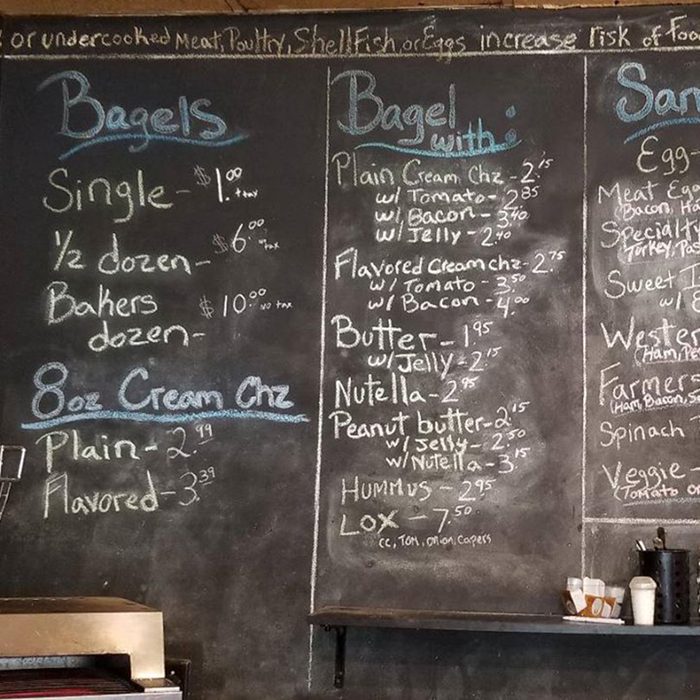 or undercooked Meat, Poultry, ShellFish, or Eggs increase risk of Foo
Bagels
Single - $1.00 + tax
1/2 dozen - $6.00 no tax
Bakers
dozen - $10.00 no tax
8oz Cream Chz
Plain - 2.99
Flavored - 3.39
Bagel
with:
Plain Cream Chz - 2.15
w/ Tomato - 2.85
w/ Bacon - 3.40
w/ Jelly - 2.40
Flavored Cream chz - 2.75
w/ Tomato - 3.50
w/ Bacon - 4.00
Butter - 1.95
w/ Jelly - 2.15
Nutella - 2.95
Peanut butter - 2.15
w/ Jelly - 2.50
w/ Nutella - 3.15
HUMMUS - 2.95
LOX - 7.50
CC, TOM, Onion, Capers
San
Egg-
Meat Eg
(Bacon, Ha
Specialty
Turkey, Pas
Sweet
w/
Wester
(Ham, Pe
Farmers
(Ham, Bacon, Sa
Spinach
Veggie
(Tomato or